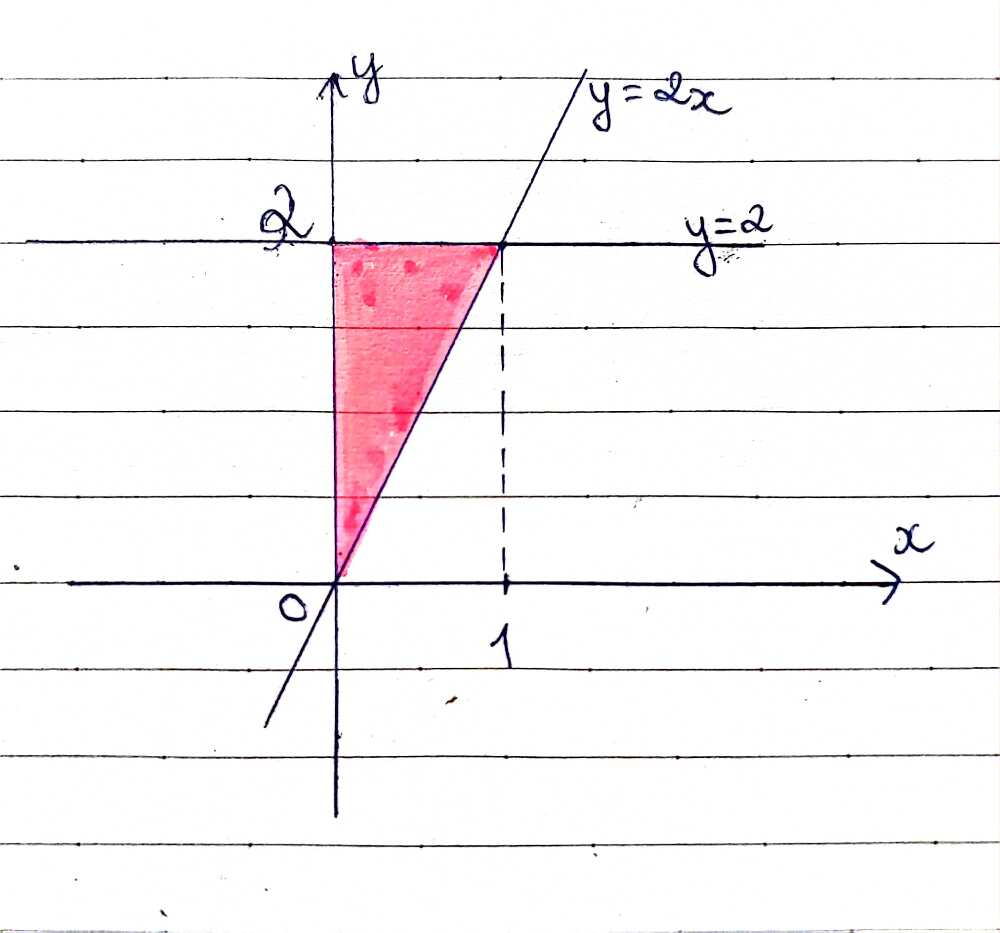 y
y=2x
2
y=2
x
0
1